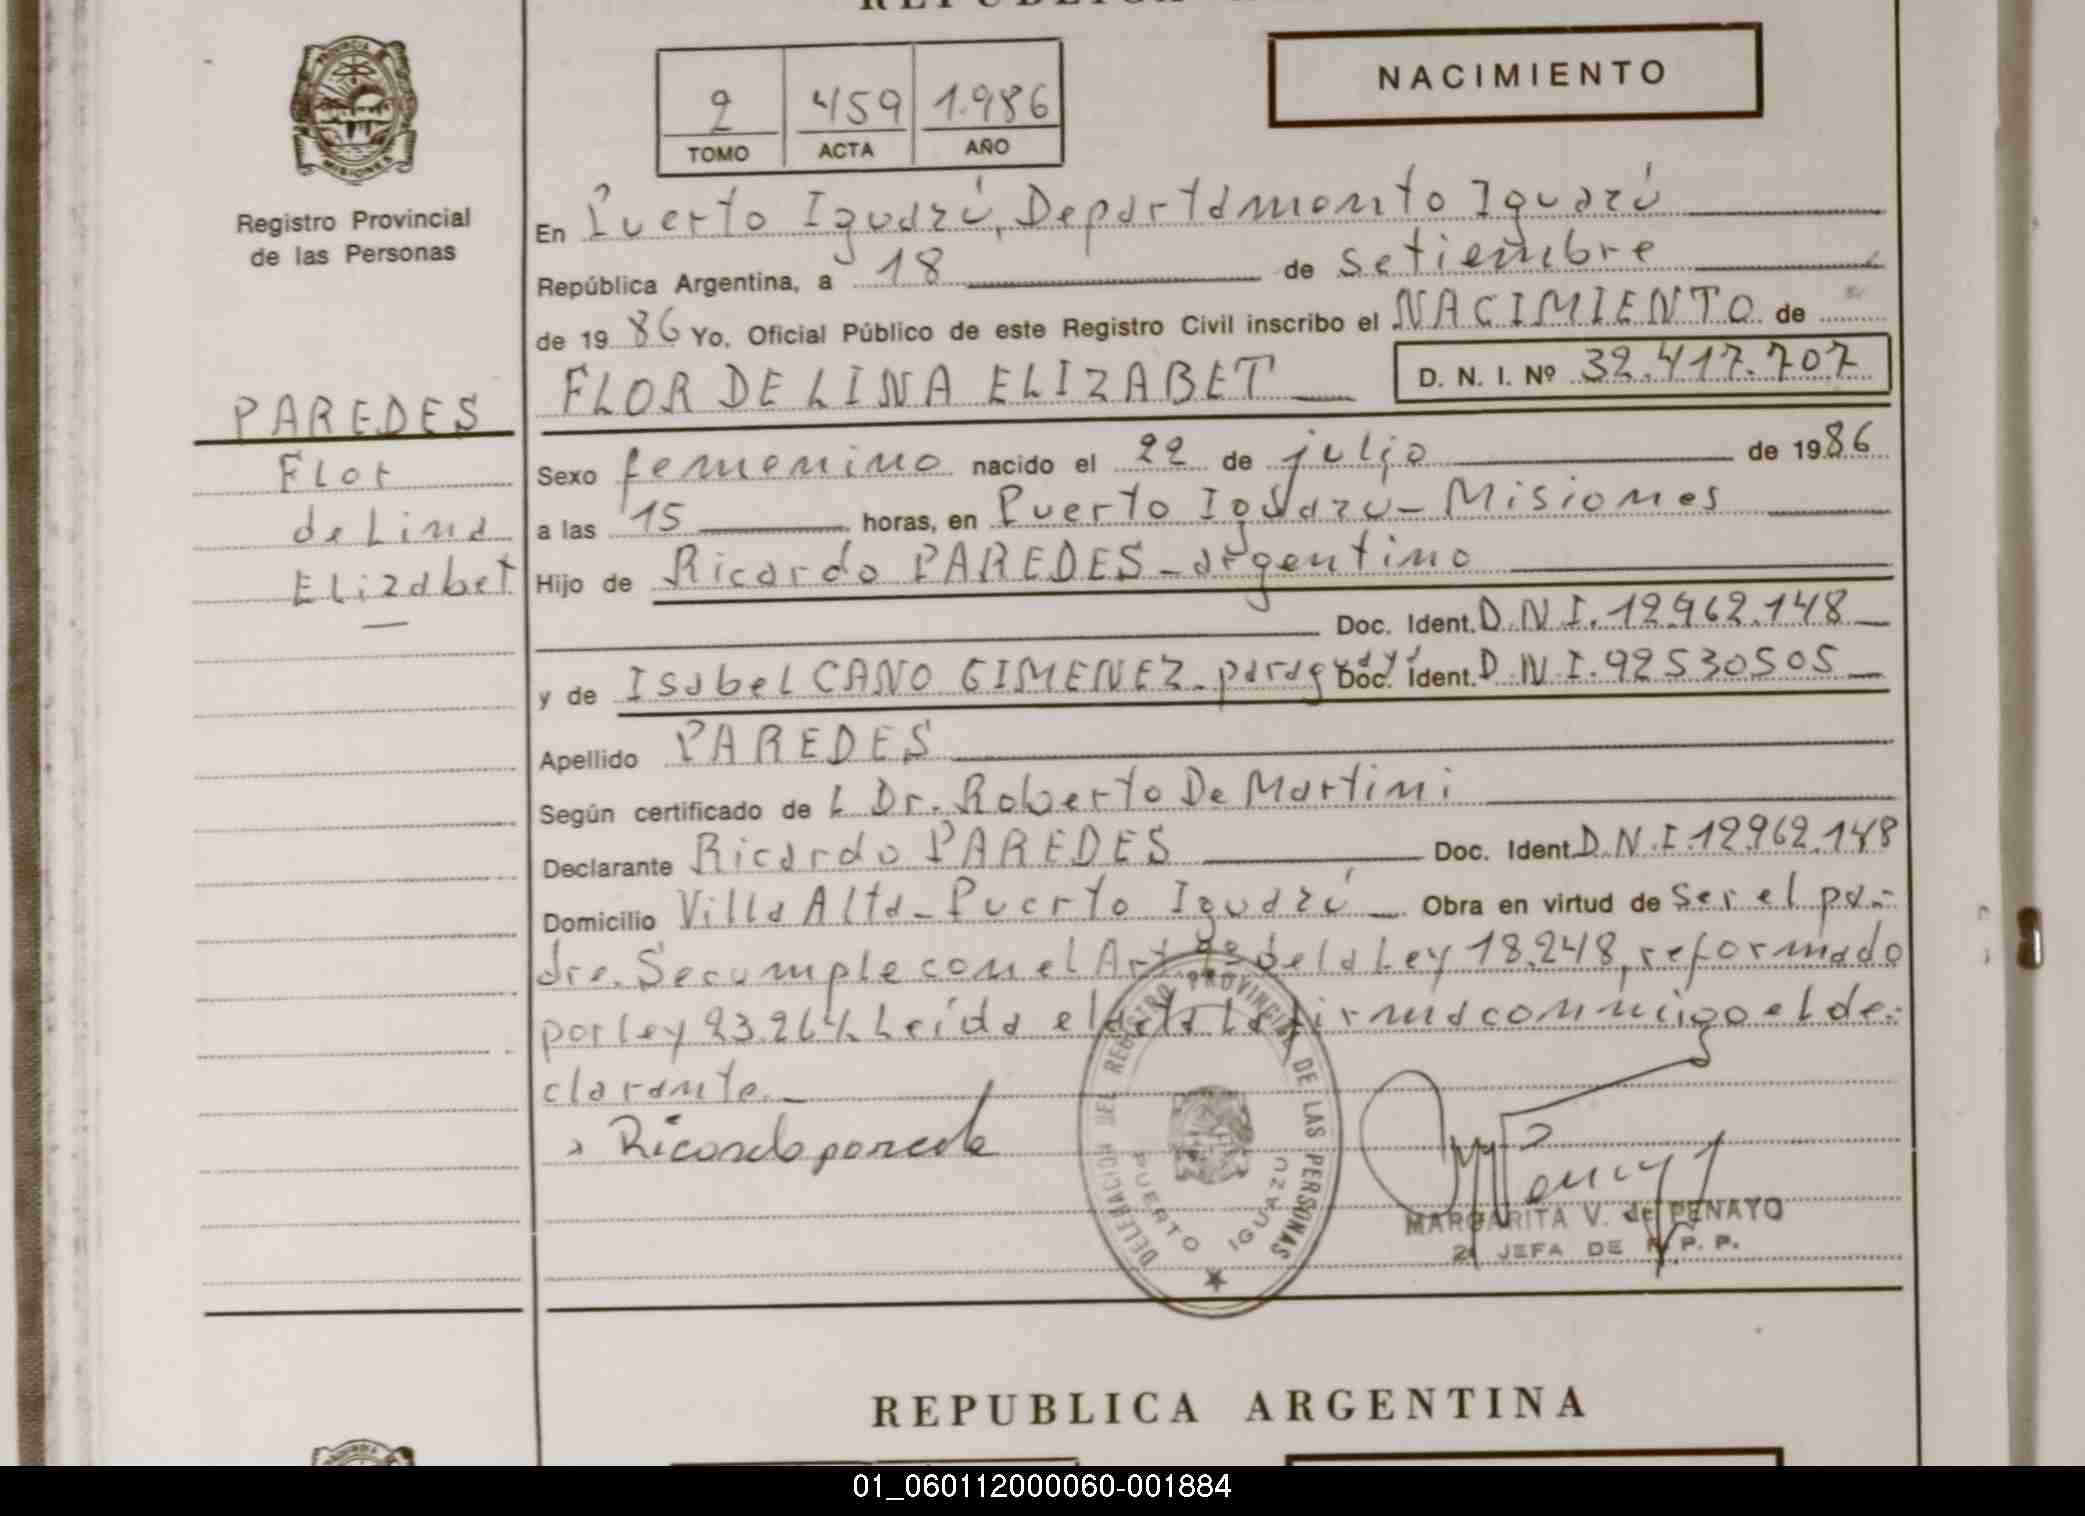 REPUBLICA
PROVINCIA DE
MISIONES
Registro Provincial
de las Personas
2 459 1.986
TOMO ACTA AÑO
NACIMIENTO
En Puerto Iguazú, Departamento Iguazú
República Argentina, a 18 de setiembre
de 1986 Yo, Oficial Público de este Registro Civil inscribo el NACIMIENTO de
FLOR DE LINA ELIZABET D. N. I. Nº 32.417.707
PAREDES
Flor
de Lina
Elizabet
Sexo femenino nacido el 22 de julio de 1986
a las 15 horas, en Puerto Iguazu - Misiones
Hijo de Ricardo PAREDES - argentino
Doc. Ident. D.N.I. 12.962.148
y de Isabel CANO GIMENEZ - paraguaya Doc. Ident. D.N.I. 92530505
Apellido PAREDES
Según certificado de L Dr. Roberto De Martini
Declarante Ricardo PAREDES Doc. Ident. D.N.I. 12.962.148
Domicilio Villa Alta - Puerto Iguazú Obra en virtud de ser el pa-
dre. Se cumple con el Art. de la Ley 18.248, reformado
por ley 23.264. Leída el acta la firma conmigo el de-
clarante.-
Ricardo parede
DELEGACION DEL REGISTRO PROVINCIAL DE LAS PERSONAS
PUERTO IGUAZU
MARGARITA V. de PENAYO
2ª JEFA DE R. P. P.
REPUBLICA ARGENTINA
01_060112000060-001884